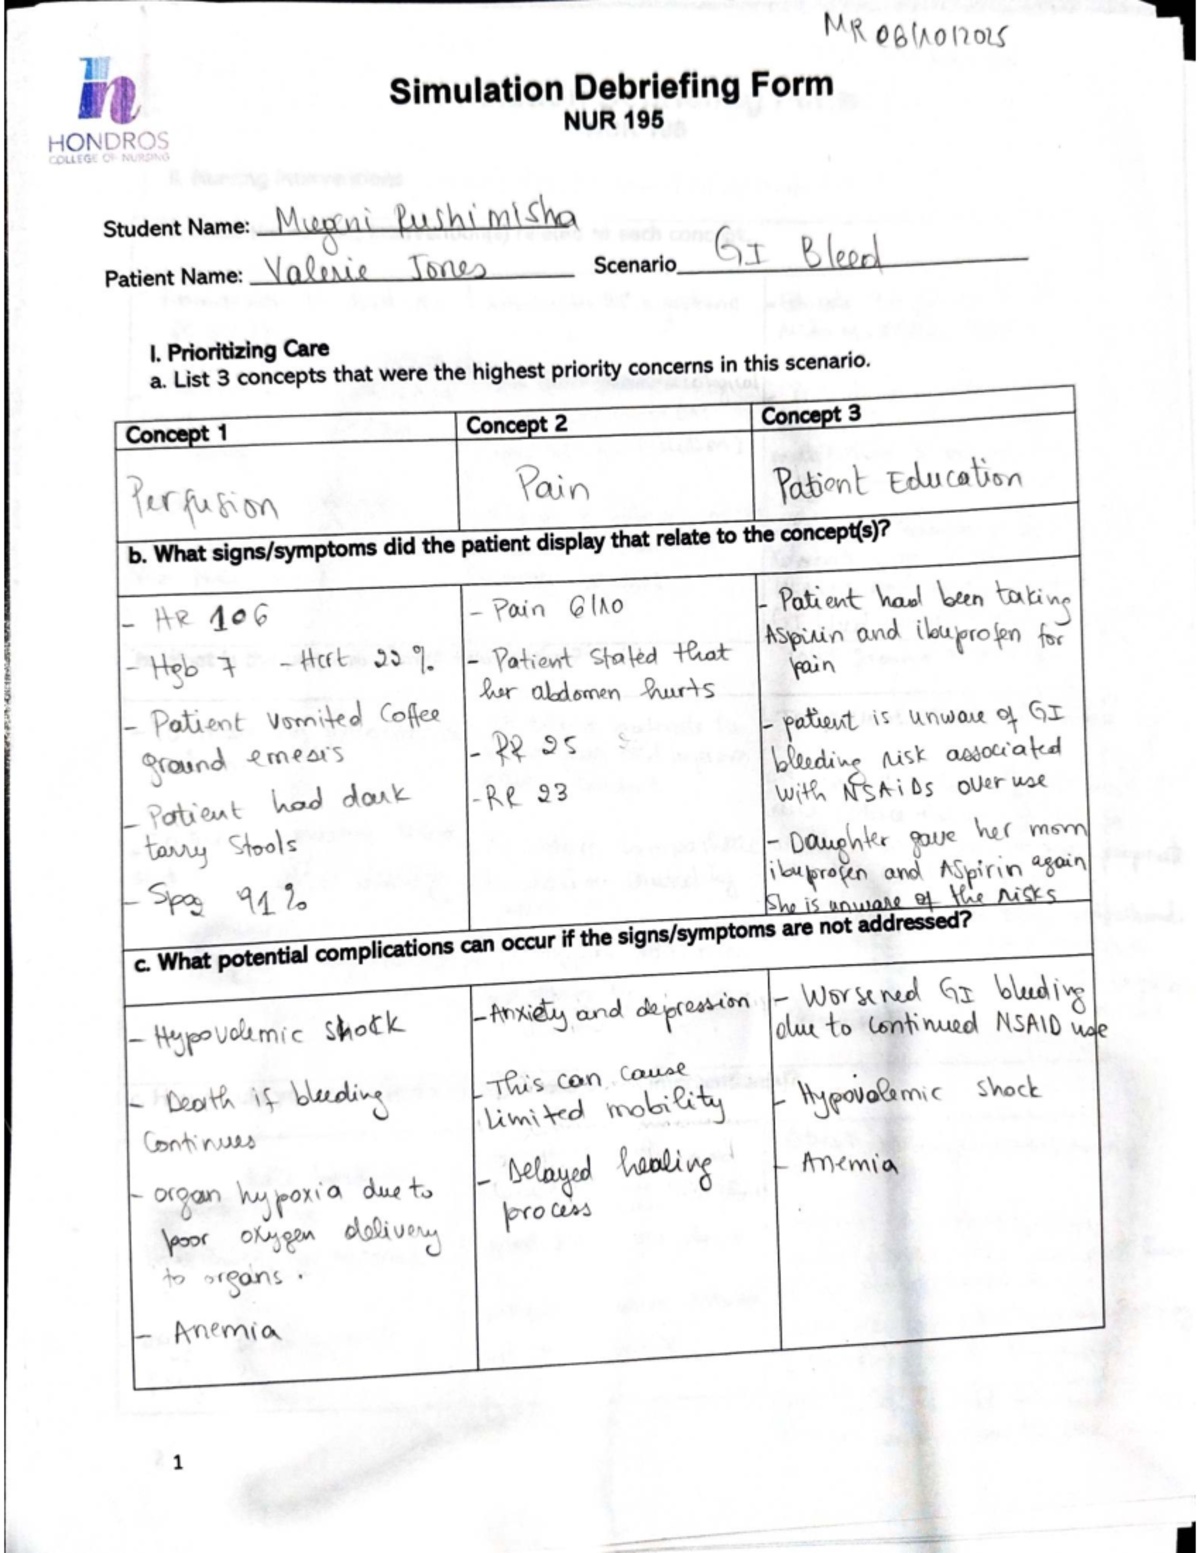 MR 06/10/2025
HONDROS
COLLEGE OF NURSING
Simulation Debriefing Form
NUR 195
Student Name: Mugeni Rushimisha
Patient Name: Valerie Jones Scenario GI Bleed
I. Prioritizing Care
a. List 3 concepts that were the highest priority concerns in this scenario.
Concept 1 Concept 2 Concept 3
Perfusion Pain Patient Education
b. What signs/symptoms did the patient display that relate to the concept(s)?
- HR 106
- Hgb 7 - Hct 22 %
- Patient vomited Coffee
ground emesis
- Patient had dark
tarry Stools
- Spo2 91%
- Pain 6/10
- Patient stated that
her abdomen hurts
- RR 25
- RR 23
- Patient had been taking
Aspirin and ibuprofen for
pain
- patient is unware of GI
bleeding risk associated
with NSAiDs over use
- Daughter gave her mom
ibuprofen and Aspirin again
She is unware of the risks
c. What potential complications can occur if the signs/symptoms are not addressed?
- Hypovolemic shock
- Death if bleeding
Continues
- organ hypoxia due to
poor oxygen delivery
to organs.
- Anemia
- Anxiety and depression
- This can cause
limited mobility
- Delayed healing
process
- Worsened GI bleeding
due to continued NSAID use
- Hypovolemic shock
- Anemia
1